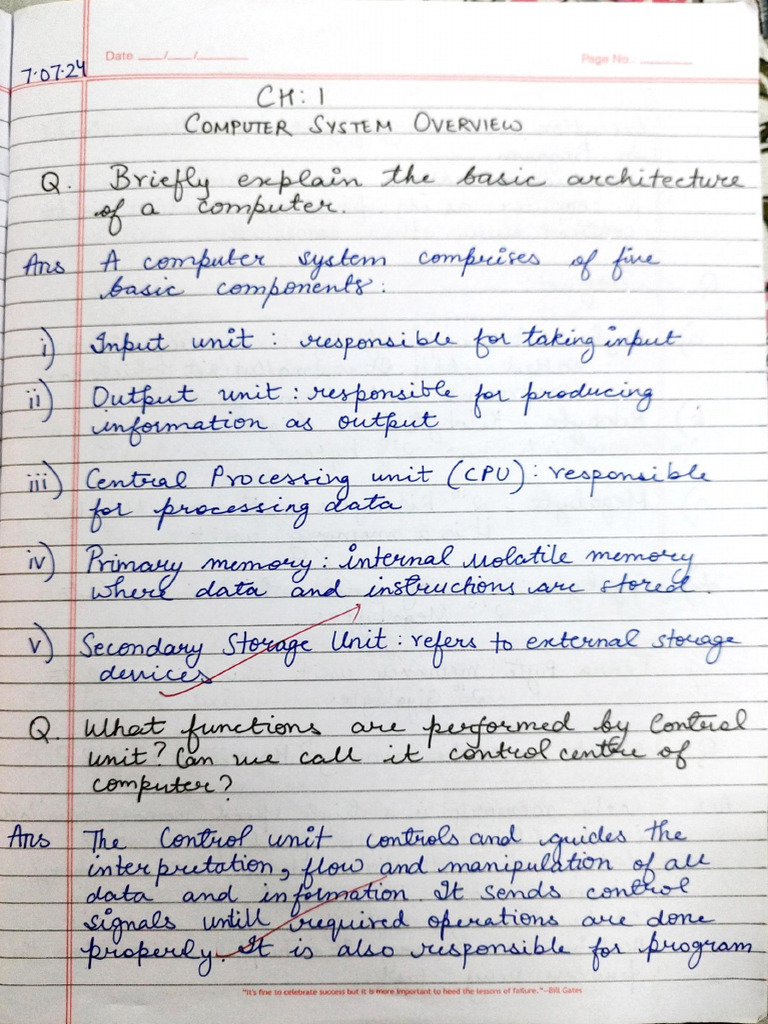 7.07.24
Date __/__/__
Page No.: ____
CH: 1
COMPUTER SYSTEM OVERVIEW
Q. Briefly explain the basic architecture
of a computer.
Ans A computer system comprises of five
basic components:
i) Input unit : responsible for taking input
ii) Output unit : responsible for producing
information as output
iii) Central Processing unit (CPU) : responsible
for processing data
iv) Primary memory : internal volatile memory
where data and instructions are stored.
v) Secondary Storage Unit : refers to external storage
devices
Q. What functions are performed by Control
unit? Can we call it control centre of
computer?
Ans The Control unit controls and guides the
interpretation, flow and manipulation of all
data and information. It sends control
signals untill required operations are done
properly. It is also responsible for program
"It's fine to celebrate success but it is more important to heed the lessons of failure."–Bill Gates